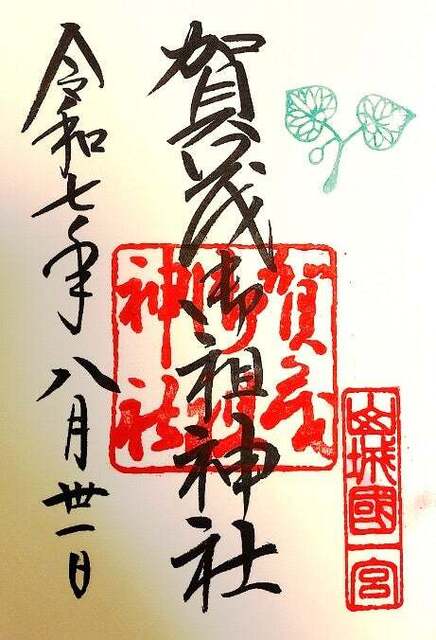 山城國一宮
賀茂御祖神社
賀茂御祖神社
令和七年八月卅一日